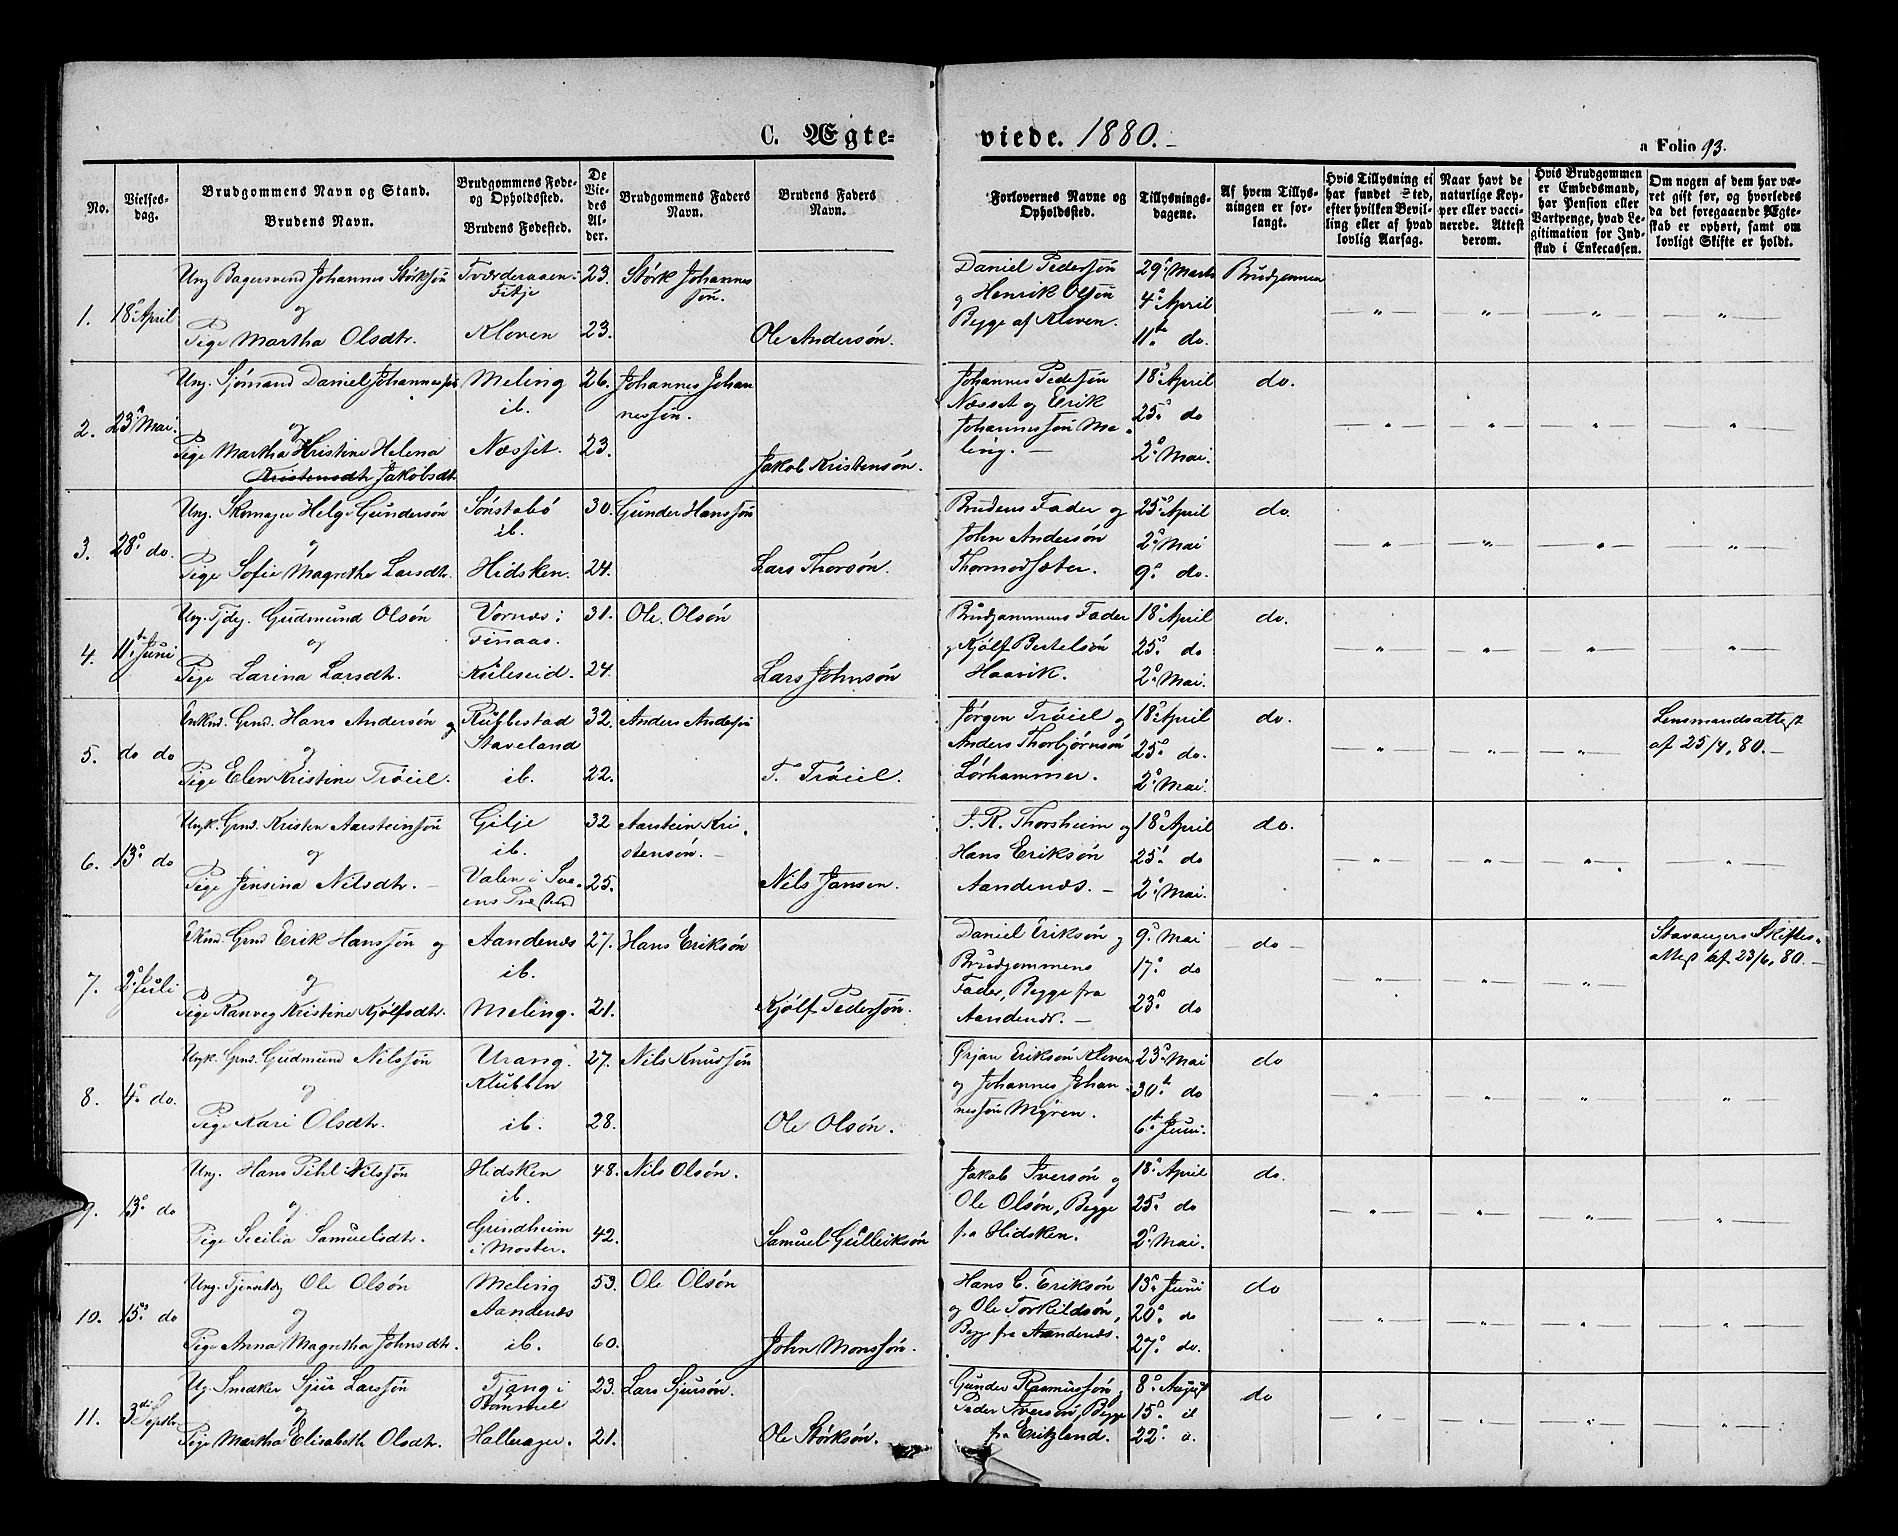 C. Ægteviede. 1880.
a Folio 93.
No.
Vielsesdag.
Brudgommens Navn og Stand.
Brudens Navn.
Brudgommens Føde- og Opholdsted.
Brudens Fødested.
De Viedes Alder.
Brudgommens Faders Navn.
Brudens Faders Navn.
Forlovernes Navne og Opholdsted.
Tillysningsdagene.
Af hvem Tillysningen er forlangt.
Hvis Tillysning ei har fundet Sted, efter hvilken Bevilling eller af hvad lovlig Aarsag.
Naar havt de naturlige Kopper eller vaccinerede. Attest derom.
Hvis Brudgommen er Embedsmand, har Pension eller Vartpenge, hvad Legitimation for Indskud i Enkecassen.
Om nogen af dem har været gift før, og hvorledes da det foregaaende Ægteskab er ophørt, samt om lovligt Skifte er holdt.
1. 18de April
Ung Bagersvend Johannes Størksøn
og
Pige Martha Olsdtr.
Tværderaasen i Fitje
Kloven
23.
23.
Størk Johannessøn.
Ole Andersøn.
Daniel Pedersøn
og Henrik Olsøn
Begge af Kloven.
29de Marts
4de April
11te do.
Brudgommen
2. 23de Mai.
Ung. Sjømand Daniel Johannessøn
og
Pige Martha Kristine Helena
Kristensdtr Jakobsdtr.
Meling
ib.
Næsset.
26.
23.
Johannes Johannessøn.
Jakob Kristensøn.
Johannes Pedersøn
Næsset og Erik
Johannessøn Meling. –
18de April
25de do
2de Mai.
do.
3. 28de do.
Ung. Skomager Helge Gundersøn
og
Pige Sofie Magrethe Larsdtr.
Sønstabø
ib.
Hidsken.
30.
24.
Gunder Hanssøn
Lars Thorsøn.
Brudens Fader og
John Andersøn
Thormodsæter.
25de April
2de Mai
9de do.
do.
4. 11te Juni
Ung. Tjdg. Gudmund Olsøn
og
Pige Larina Larsdtr.
Vornæs i
Finaas.
Kuleseid.
31.
24.
Ole. Olsøn
Lars Johnsøn
Brudgommens Fader
og Kjølf Bertelsøn
Haavik.
18de April
25de do
2de Mai.
do.
5. do do
Enkmd. Grmd. Hans Andersøn og
og
Pige Elen Kristine Trøiel.
Rubbestad
Staveland
ib.
32.
22.
Anders Andersøn
T. Trøiel.
Jørgen Trøiel og
Anders Thorbjørnsøn
Lørhammer.
18de April
25de do.
2de Mai.
do.
Lensmandsattest
af 25/4, 80. –
6. 13de do
Ungk. Grmd. Kristen Aarsteinsøn
og
Pige Jensina Nilsdtr. –
Gilje
ib.
Valen i Sveens Præsthed
32
25.
Aarstein Kristensøn. –
Nils Jansen.
J. R. Thorsheim og
Hans Eriksøn
Aandenæs. –
18de April
25de do
2de Mai.
do.
7. 2de Juli
Ekmd. Grmd Erik Hanssøn og
og
Pige Ranveg Kristine Kjølfsdtr.
Aandenæs
ib.
Meling.
27.
21.
Hans Eriksøn
Kjølf Pedersøn.
Daniel Eriksøn og
Brudgommens
Fader, Begge fra
Aandenæs. –
9de Mai
17de do
23de do
do –
Stavangers Skiftesattest af 23/6, 80. –
8. 4de do.
Ungk. Grmd. Gudmund Nilssøn
og
Pige Kari Olsdtr.
Urang
Klubben
ib.
27.
28.
Nils Knudsøn
Ole Olsøn.
Ørjan Eriksøn Kloven
og Johannes Johannessøn Myren.
23de Mai
30te do
6te Juni.
do
9. 13de do
Ung. Hans Pihl Nilssøn
og
Pige Secilia Samuelsdtr.
Hidsken
ib.
Grindheim
i Moster.
48.
42.
Nils Olsøn.
Samuel Gulleiksøn
Jakob Iversøn og
Ole Olsøn, Begge
fra Hidsken.
18de April
25de do
2de Mai.
do.
10. 15de do
Ung. Tjenestdg Ole Olsøn
og
Pige Anna Magretha Johnsdtr.
Meling
Aandenæs
ib.
53.
60.
Ole Olsøn
John Monssøn.
Hans C. Eriksøn
og Ole Torkildsøn,
Begge fra Aandenæs.
13de Juni
20de do
27de do.
do
11. 3die Septbr.
Ug. Snedker Sjur Larssøn
og
Pige Martha Elisabeth Olsdtr.
Tjang i
Bømmel
Hallerager.
23.
21.
Lars Sjursøn.
Ole Størksøn.
Gunder Rasmussøn,
Peder Iversøn, Begge
fra Eritzland.
8de August
15de
22de
do